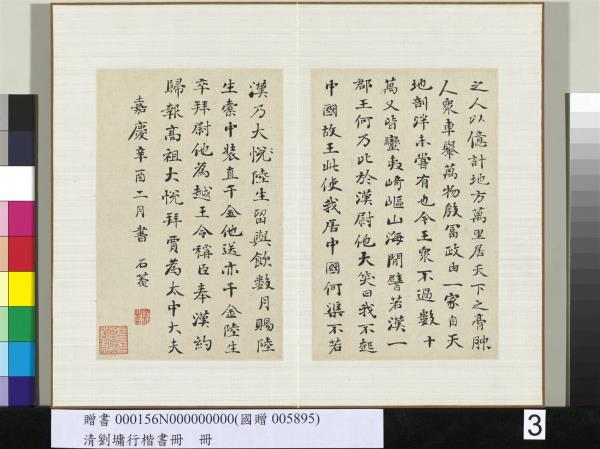 之人以億計地方萬里居天下之膏腴
人衆車轝萬物殷富政由一家自天
地剖泮未嘗有也今王衆不過數十
萬又皆蠻夷崎嶇山海間譬若漢一
郡王何乃比於漢尉他大笑曰我不起
中國故王此使我居中國何渠不若
漢乃大悅陸生留與飲數月賜陸
生橐中裝直千金他送亦千金陸生
卒拜尉他為越王令稱臣奉漢約
歸報高祖大悅拜賈為太中大夫
嘉慶辛酉二月書 石菴
贈書 000156N000000000(國贈 005895)
清劉墉行楷書冊 冊
3